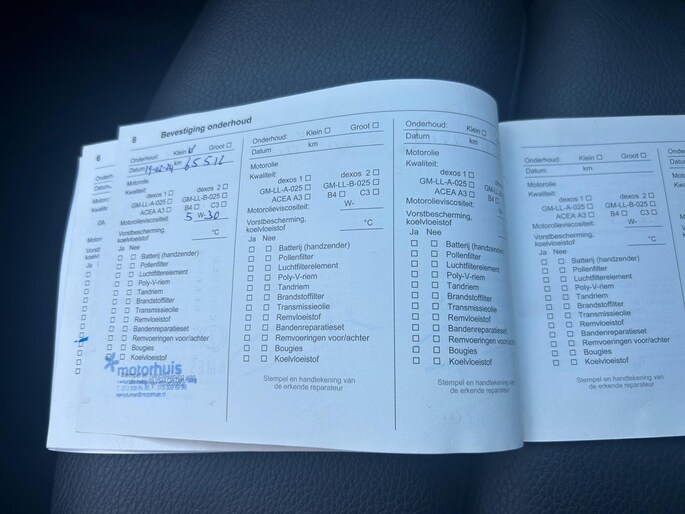 8 Bevestiging onderhoud
Onderhoud: Klein Groot
Datum 19-02-24 km 65512
Motorolie
Kwaliteit:
dexos 1 dexos 2
GM-LL-A-025 GM-LL-B-025
ACEA A3 B4 C3
Motorolieviscositeit: 5 W-30
Vorstbescherming, koelvloeistof °C
Ja Nee
Batterij (handzender)
Pollenfilter
Luchtfilterelement
Poly-V-riem
Tandriem
Brandstoffilter
Transmissieolie
Remvloeistof
Bandenreparatieset
Remvoeringen voor/achter
Bougies
Koelvloeistof
motorhuis
Onderhoud: Klein Groot
Datum km
Motorolie
Kwaliteit:
dexos 1 dexos 2
GM-LL-A-025 GM-LL-B-025
ACEA A3 B4 C3
Motorolieviscositeit: W-
Vorstbescherming,
koelvloeistof °C
Ja Nee
Batterij (handzender)
Pollenfilter
Luchtfilterelement
Poly-V-riem
Tandriem
Brandstoffilter
Transmissieolie
Remvloeistof
Bandenreparatieset
Remvoeringen voor/achter
Bougies
Koelvloeistof
Stempel en handtekening van
de erkende reparateur
Onderhoud: Klein
Datum
Motorolie
Kwaliteit:
dexos 1
GM-LL-A-025
ACEA A3
Motorolieviscositeit:
Vorstbescherming,
koelvloeistof
Ja Nee
Batterij (handzender)
Pollenfilter
Luchtfilterelement
Poly-V-riem
Tandriem
Brandstoffilter
Transmissieolie
Remvloeistof
Bandenreparatieset
Remvoeringen
Bougies
Koelvloeistof
Stempel en handtekening van
de erkende reparateur
Onderhoud: Klein Groot
Datum km
Motorolie
Kwaliteit:
dexos 1 dexos 2
GM-LL-A-025 GM-LL-B-025
ACEA A3 B4 C3
Motorolieviscositeit: W-
Vorstbescherming,
koelvloeistof °C
Ja Nee
Batterij (handzender)
Pollenfilter
Luchtfilterelement
Poly-V-riem
Tandriem
Brandstoffilter
Transmissieolie
Remvloeistof
Bandenreparatieset
Remvoeringen voor/achter
Bougies
Koelvloeistof
Stempel en handtekening van
de erkende reparateur